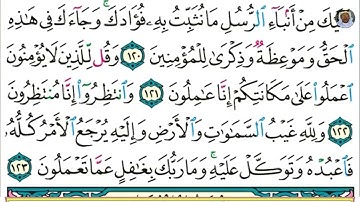 ـكَ مِنْ أَنۢبَآءِ ٱلرُّسُلِ مَا نُثَبِّتُ بِهِۦ فُؤَادَكَ ۚ وَجَآءَكَ فِى هَٰذِهِ
ٱلْحَقُّ وَمَوْعِظَةٌ وَذِكْرَىٰ لِلْمُؤْمِنِينَ ١٢٠ وَقُل لِّلَّذِينَ لَا يُؤْمِنُونَ
ٱعْمَلُوا۟ عَلَىٰ مَكَانَتِكُمْ إِنَّا عَٰمِلُونَ ١٢١ وَٱنتَظِرُوٓا۟ إِنَّا مُنتَظِرُونَ
١٢٢ وَلِلَّهِ غَيْبُ ٱلسَّمَٰوَٰتِ وَٱلْأَرْضِ وَإِلَيْهِ يُرْجَعُ ٱلْأَمْرُ كُلُّهُۥ
فَٱعْبُدْهُ وَتَوَكَّلْ عَلَيْهِ ۚ وَمَا رَبُّكَ بِغَٰفِلٍ عَمَّا تَعْمَلُونَ ١٢٣